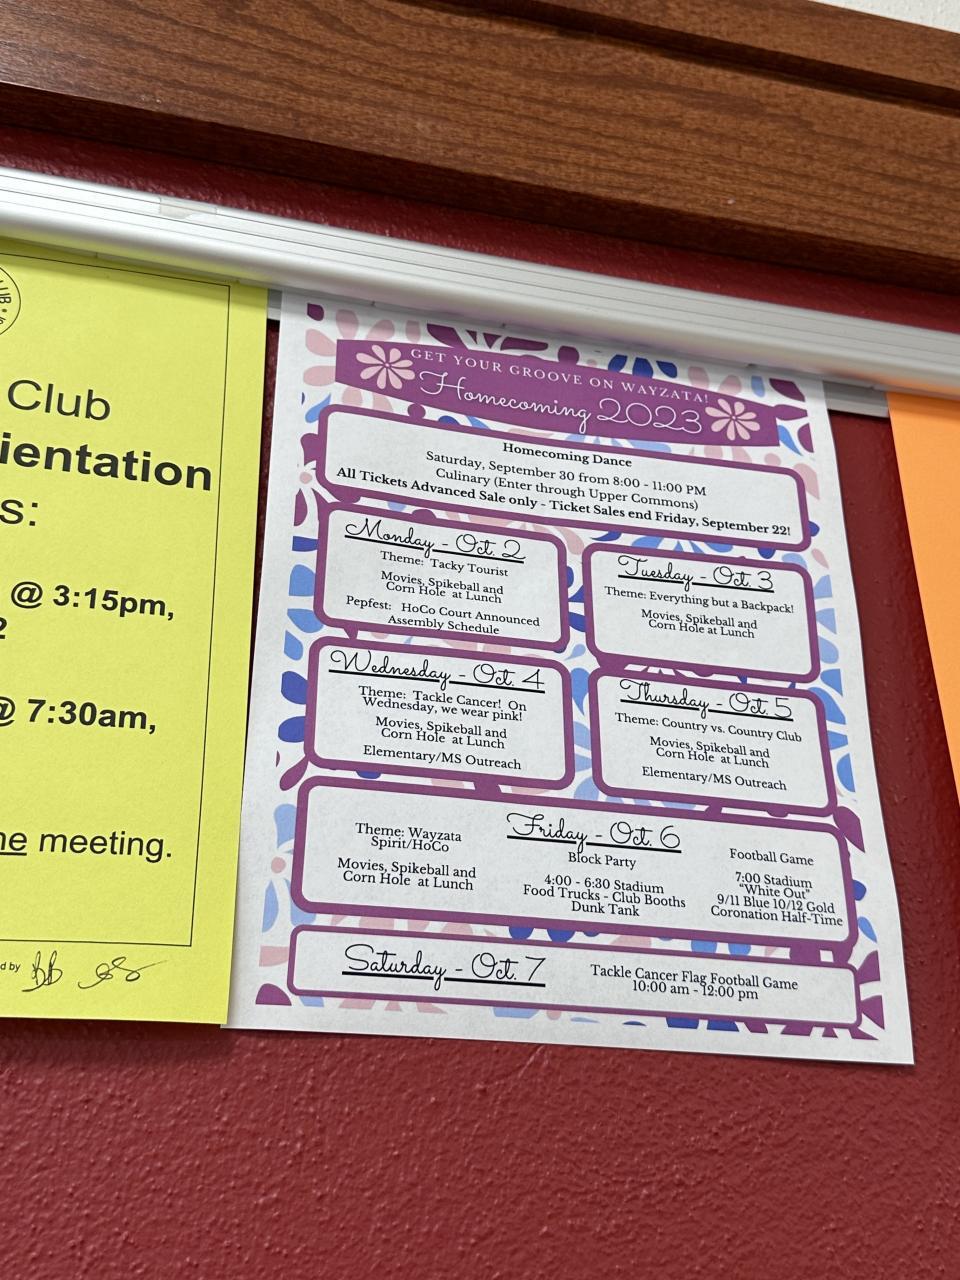 Club
ientation
s:
@ 3:15pm,
2
@ 7:30am,
ne meeting.
d by
GET YOUR GROOVE ON WAYZATA!
Homecoming 2023
Homecoming Dance
Saturday, September 30 from 8:00 - 11:00 PM
Culinary (Enter through Upper Commons)
All Tickets Advanced Sale only - Ticket Sales end Friday, September 22!
Monday - Oct. 2
Theme: Tacky Tourist
Movies, Spikeball and
Corn Hole at Lunch
Pepfest: HoCo Court Announced
Assembly Schedule
Tuesday - Oct. 3
Theme: Everything but a Backpack!
Movies, Spikeball and
Corn Hole at Lunch
Wednesday - Oct. 4
Theme: Tackle Cancer! On
Wednesday, we wear pink!
Movies, Spikeball and
Corn Hole at Lunch
Elementary/MS Outreach
Thursday - Oct. 5
Theme: Country vs. Country Club
Movies, Spikeball and
Corn Hole at Lunch
Elementary/MS Outreach
Friday - Oct. 6
Theme: Wayzata
Spirit/HoCo
Movies, Spikeball and
Corn Hole at Lunch
Block Party
4:00 - 6:30 Stadium
Food Trucks - Club Booths
Dunk Tank
Football Game
7:00 Stadium
"White Out"
9/11 Blue 10/12 Gold
Coronation Half-Time
Saturday - Oct. 7
Tackle Cancer Flag Football Game
10:00 am - 12:00 pm